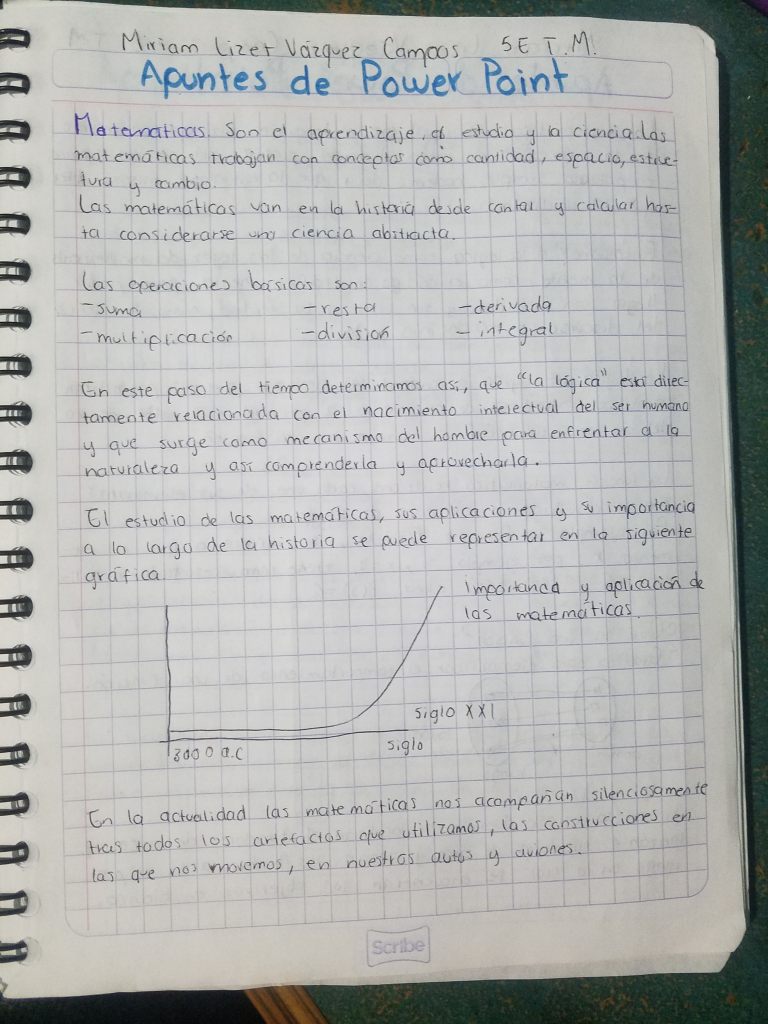 Miriam Lizet Vázquez Campos 5E T.M.
Apuntes de Power Point
Matemáticas. Son el aprendizaje, el estudio y la ciencia. las
matemáticas trabajan con conceptos como cantidad, espacio, estruc-
tura y cambio.
Las matemáticas van en la historia desde contar y calcular has-
ta considerarse una ciencia abstracta.
Las operaciones básicas son:
-suma -resta -derivada
-multiplicación -división -integral
En este paso del tiempo determinamos así, que "la lógica" está direc-
tamente relacionada con el nacimiento intelectual del ser humano
y que surge como mecanismo del hombre para enfrentar a la
naturaleza y así comprenderla y aprovecharla.
El estudio de las matemáticas, sus aplicaciones y su importancia
a lo largo de la historia se puede representar en la siguiente
gráfica
importancia y aplicación de
las matemáticas.
siglo XXI
3000 a.C siglo
En la actualidad las matemáticas nos acompañan silenciosamente
tras todos los artefactos que utilizamos, las construcciones en
las que nos movemos, en nuestros autos y aviones.
Scribe